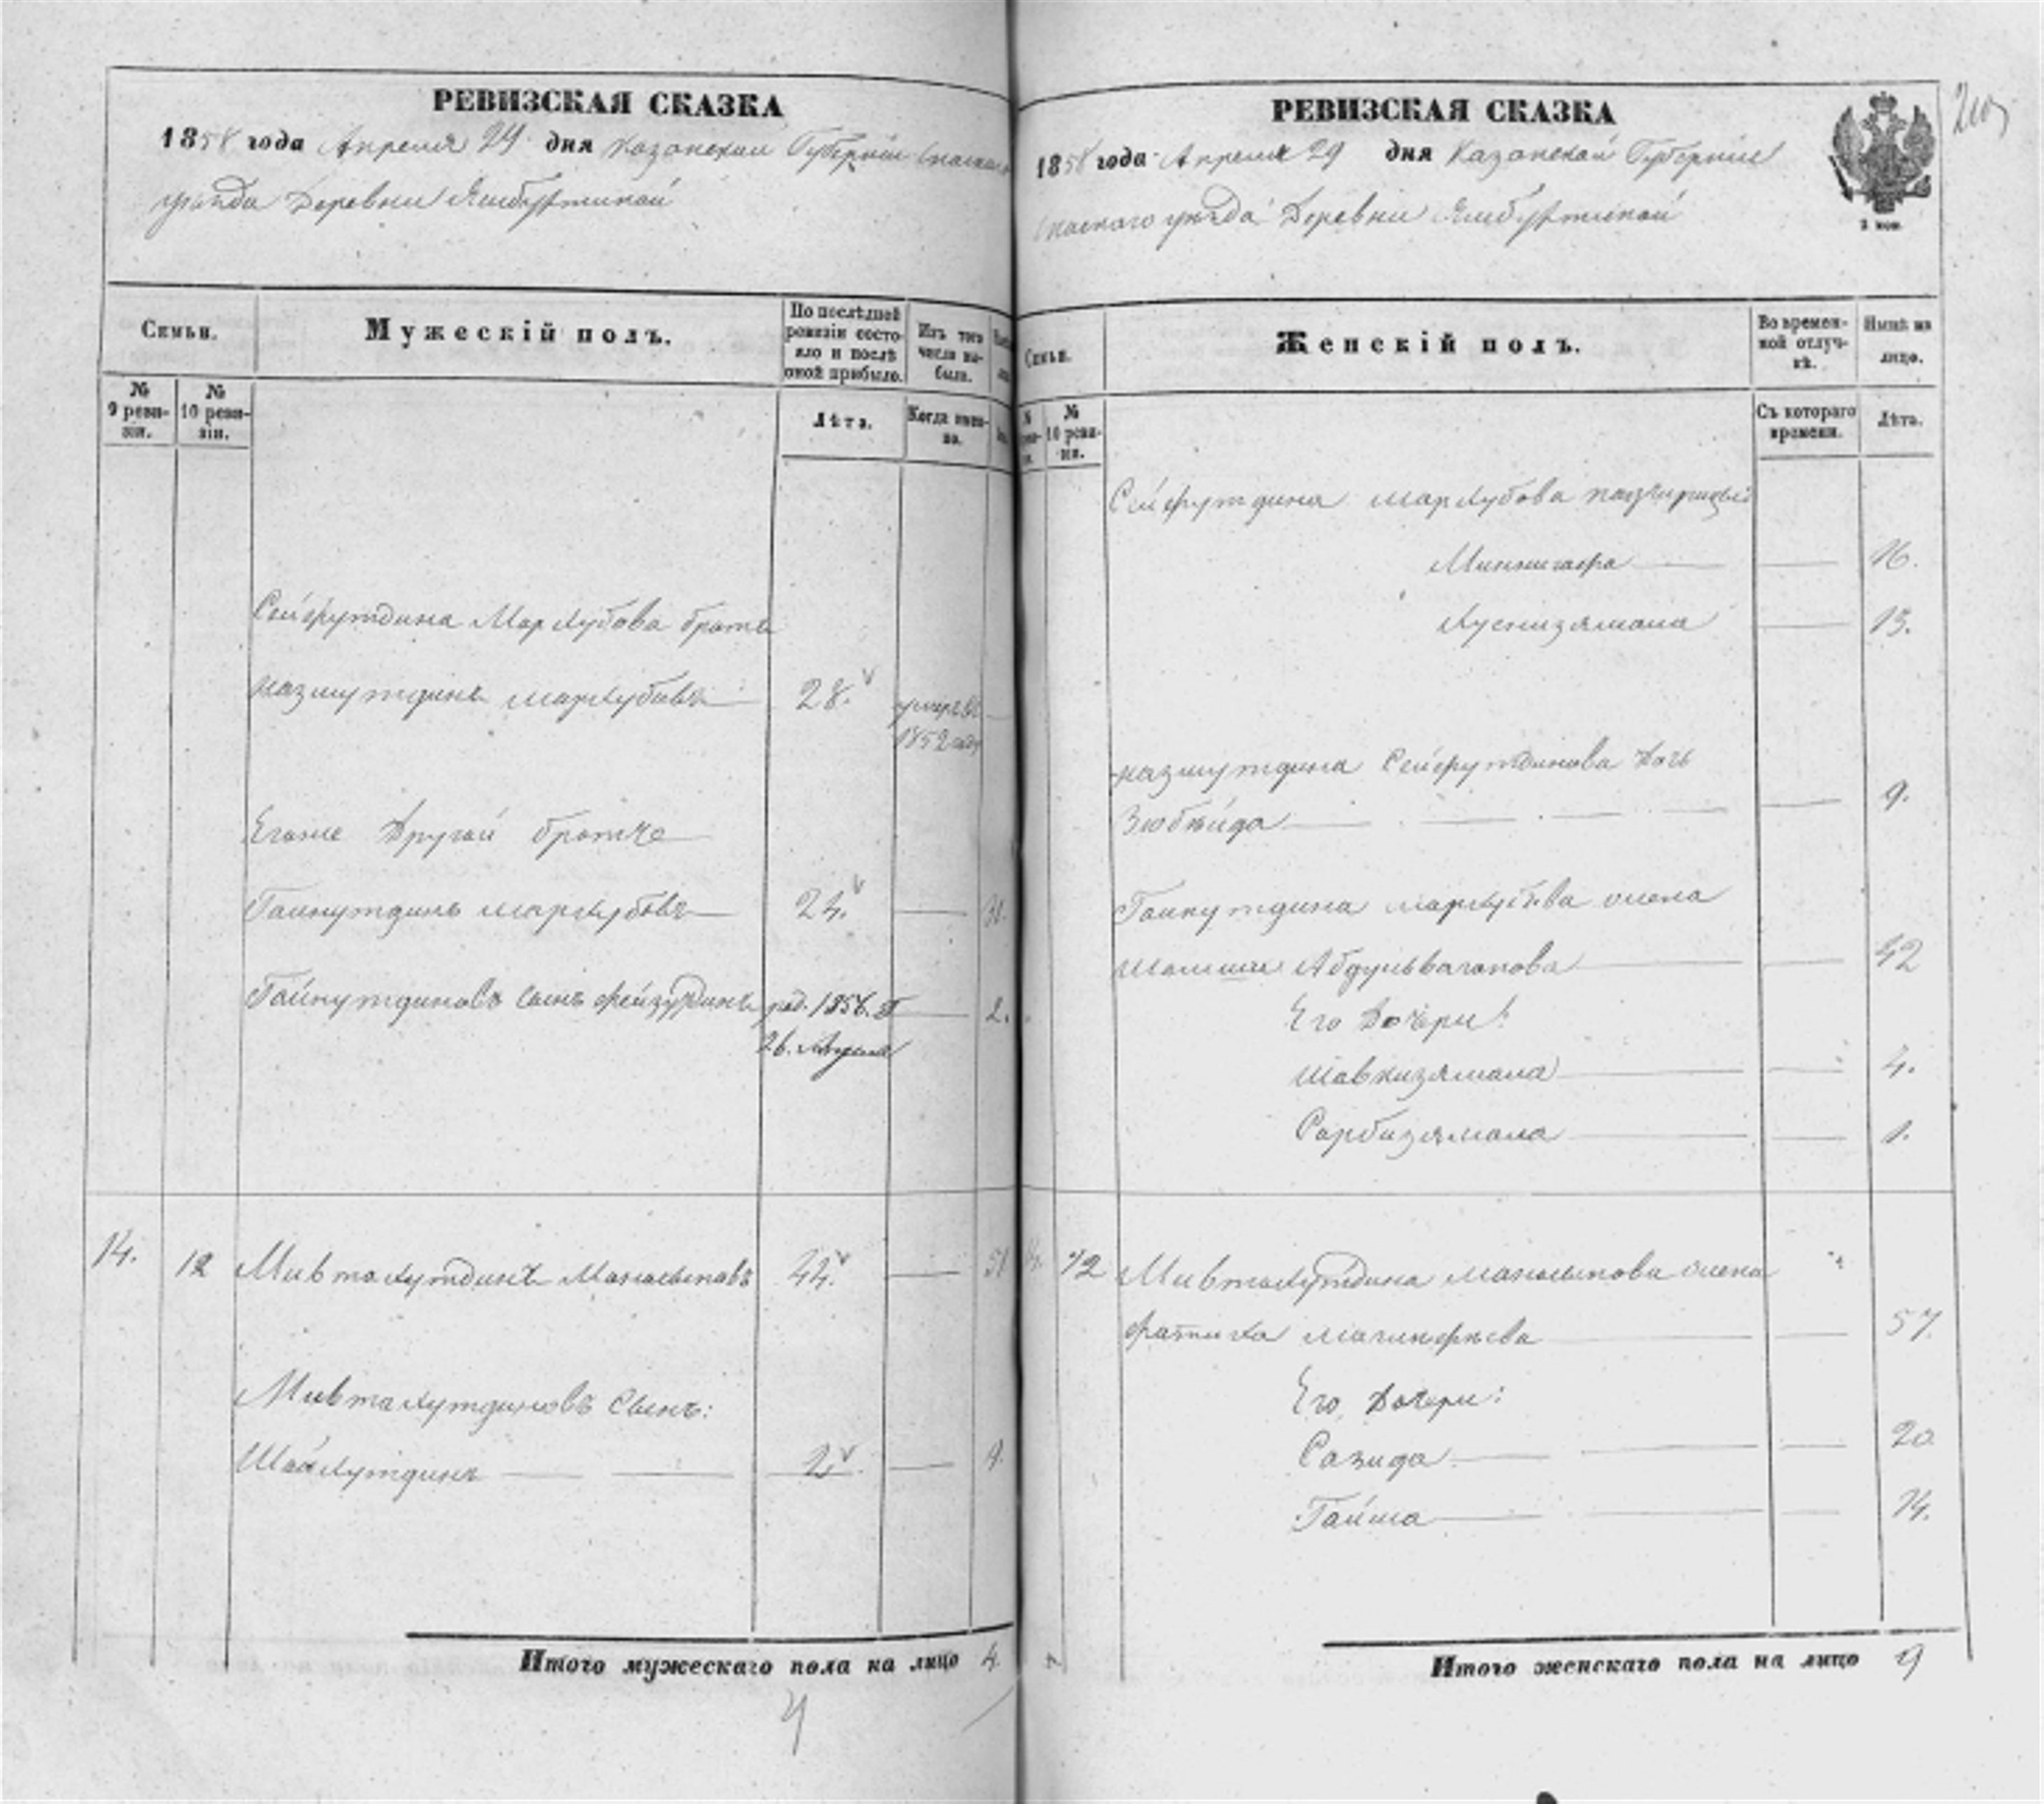 РЕВИЗСКАЯ СКАЗКА
1858 года Апреля 29 дня Казанской Губерніи Спаскаго
уѣзда Деревни Ямбухтиной
Семьи.
Мужескій полъ.
По послѣдней ревизіи состояло и послѣ оной прибыло.
Изъ того числа выбыло.
№ 9 ревизіи.
№ 10 ревизіи.
Лѣта.
Когда именно.
Сейфутдина Мархубова братъ
Назмутдинъ Мархубовъ 28.
умеръ въ
1852 году
Егоже Другой братъ
Гайнутдинъ Мархубовъ 24. 31.
Гайнутдиновъ сынъ Фейзутдинъ род. 1856. г 2.
26. Апреля
14. 12 Мивтахутдинъ Манасыповъ 44. 51
Мивтахутдиновъ Сынъ:
Шайхутдинъ 2. 9.
Итого мужескаго пола на лицо 4.
4
РЕВИЗСКАЯ СКАЗКА
1858 года Апреля 29 дня Казанской Губерніи
Спаскаго уѣзда Деревни Ямбухтиной
2 коп.
Семьи.
Женскій полъ.
Во временной отлучкѣ.
Нынѣ на лицо.
№ 10 ревизіи.
Съ котораго времени.
Лѣта.
Сейфутдина Мархубова
Миннигафа 16.
Хуснизямала 13.
Назмутдина Сейфутдинова дочь
Зюбейда 9.
Гайнутдина Мархубова жена
Абдулвагапова 42
Его Дочери:
Шавкизямала 4.
Сарбизямала 1.
12 Мивтахутдина Манасыпова жена
Фатиха 57.
Его Дочери:
Сазида 20
Гайша 14.
Итого женскаго пола на лицо 9